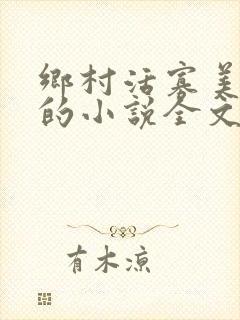 鄉村活寡美
的小說全文
有木涼